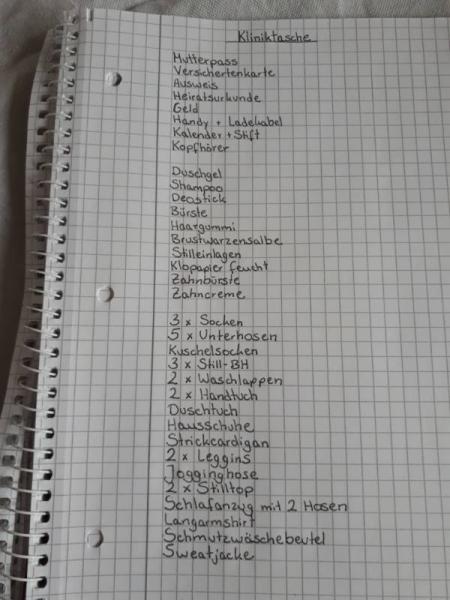 Kliniktasche
Mutterpass
Versichertenkarte
Ausweis
Heiratsurkunde
Geld
Handy + Ladekabel
Kalender + Stift
Kopfhörer
Duschgel
Shampoo
Deostick
Bürste
Haargummi
Brustwarzensalbe
Stilleinlagen
Klopapier feucht
Zahnbürste
Zahncreme
3 x Socken
5 x Unterhosen
Kuschelsocken
3 x Still-BH
2 x Waschlappen
2 x Handtuch
Duschtuch
Hausschuhe
Strickcardigan
2 x Leggins
Jogginghose
2 x Stilltop
Schlafanzug mit 2 Hosen
Langarmshirt
Schmutzwäschebeutel
Sweatjacke